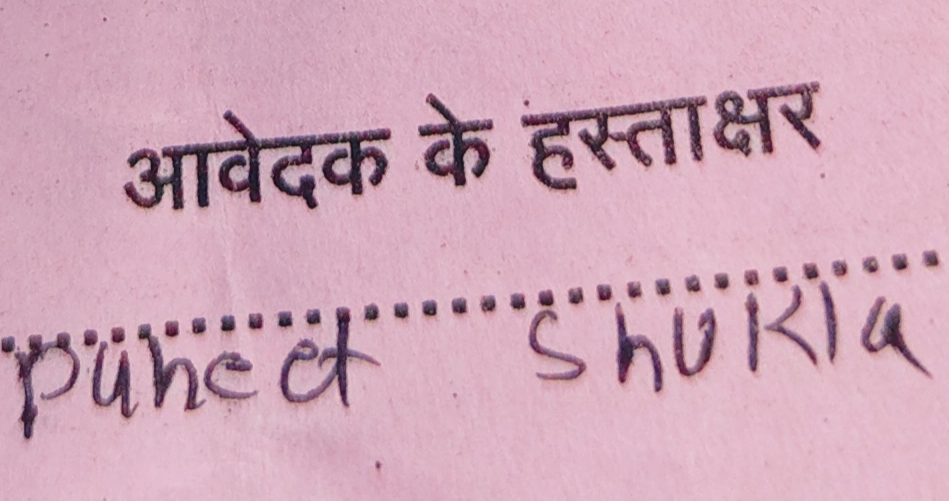 आवेदक के हस्ताक्षर
Puneet Shukla